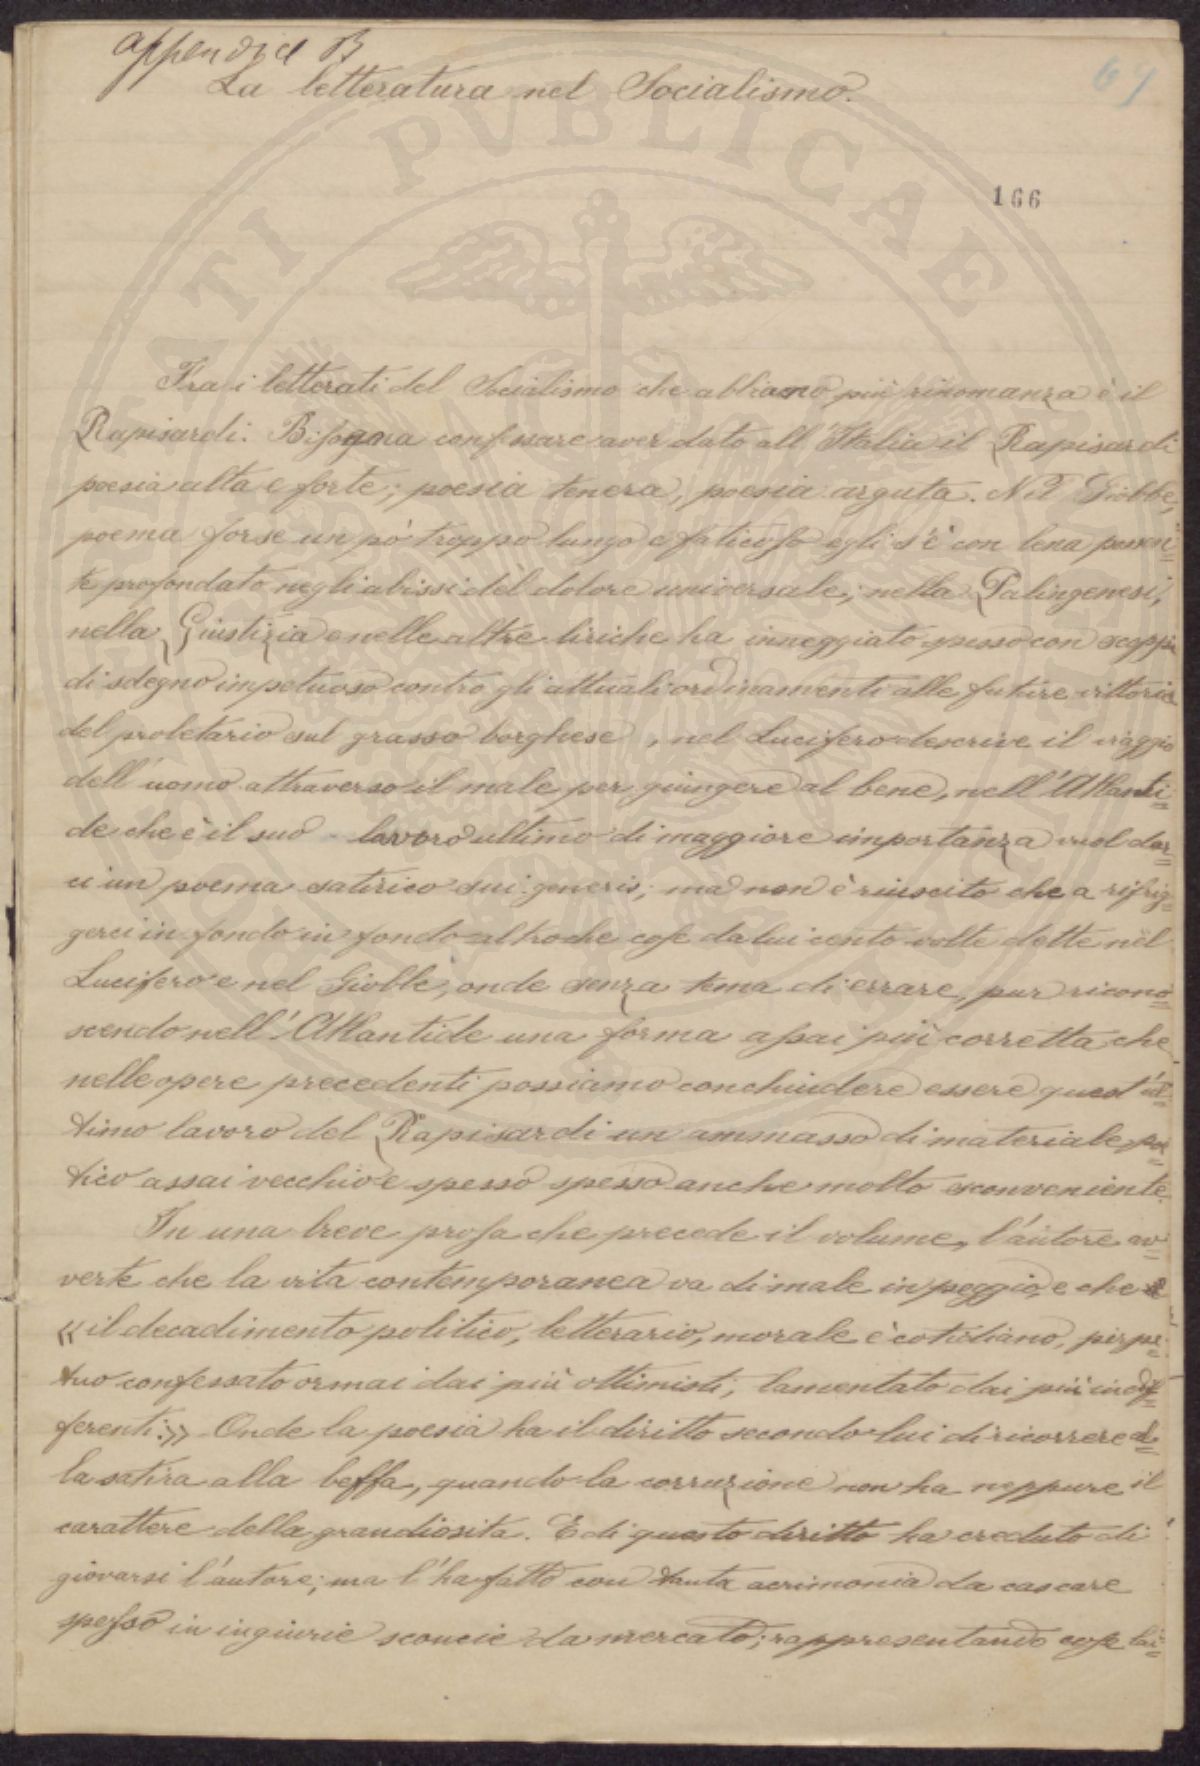 appendice B
La letteratura nel Socialismo.
69
166
Fra i letterati del Socialismo che abbiano più rinomanza è il
Rapisardi. Bisogna confessare aver dato all'Italia il Rapisardi
poesia alta e forte; poesia tenera, poesia arguta. Nel Giobbe,
poema forse un pò troppo lungo e faticoso egli s'è con lena possen=
te profondato negli abissi del dolore universale; nella Palingenesi,
nella Giustizia e nelle altre liriche ha inneggiato spesso con scoppi
di sdegno impetuoso contro gli attuali ordinamenti alle future vittorie
del proletario sul grasso borghese, nel Lucifero descrive il viaggio
dell'uomo attraverso il male per giungere al bene, nell'Atlanti=
de che è il suo lavoro ultimo di maggiore importanza vuol dar=
ci un poema satirico sui generis; ma non è riuscito che a rifrig=
gerci in fondo in fondo altro che cose da lui cento volte dette nel
Lucifero e nel Giobbe, onde senza tema di errare, pur ricono=
scendo nell'Atlantide una forma assai più corretta che
nelle opere precedenti possiamo conchiudere essere quest'ul=
timo lavoro del Rapisardi un ammasso di materiale poe=
tico assai vecchio e spesso spesso anche molto sconveniente.
In una breve prosa che precede il volume, l'autore av=
verte che la vita contemporanea va di male in peggio, e che
«il decadimento politico, letterario, morale è cotidiano, perpe=
tuo confessato ormai dai più ottimisti, lamentato dai più indif=
ferenti.» Onde la poesia ha il diritto secondo lui di ricorrere al=
la satira alla beffa, quando la corruzione non ha neppure il
carattere della grandiosita. E di questo diritto ha creduto di
giovarsi l'autore; ma l'ha fatto con tanta acrimonia da cascare
spesso in ingiurie sconcie da mercato; rappresentando cose tai=